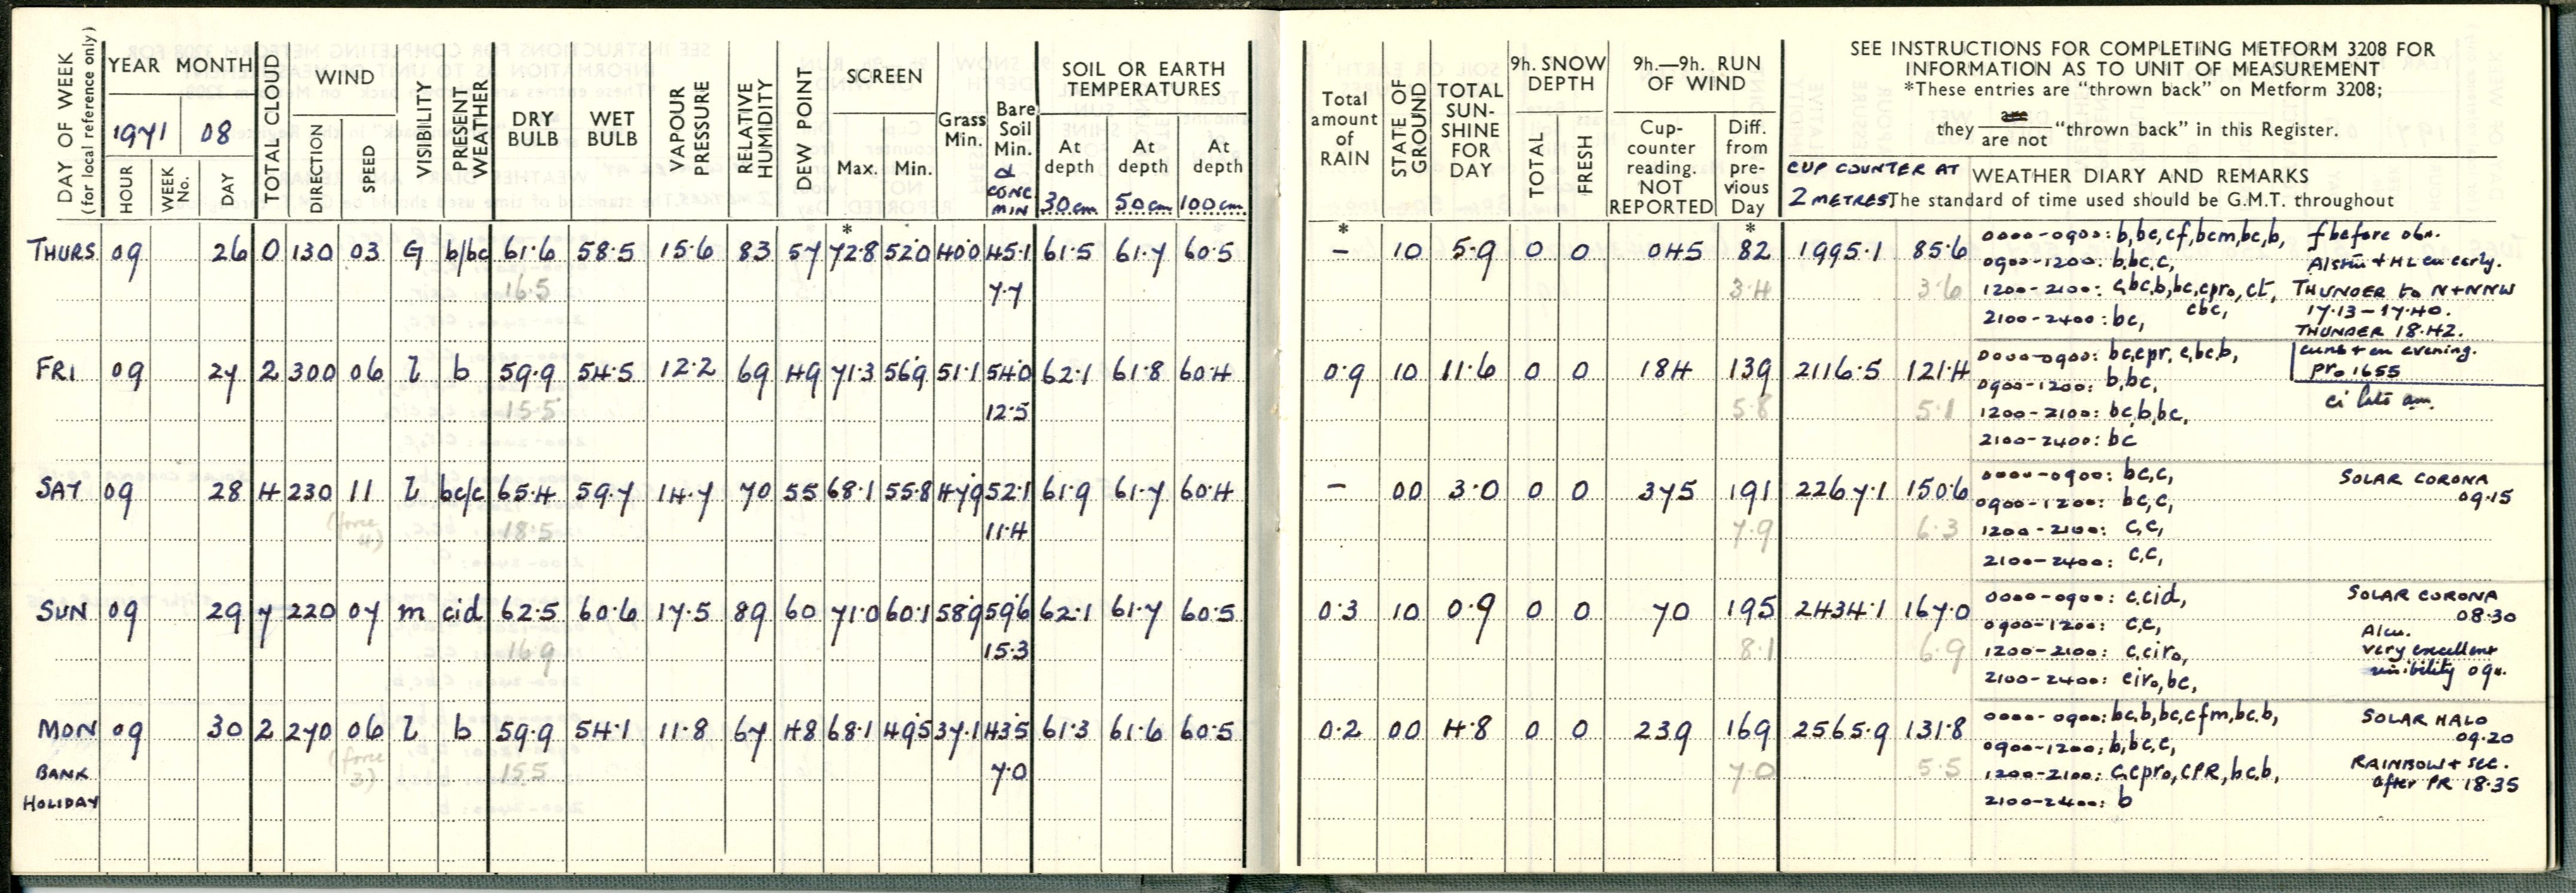 DAY OF WEEK (for local reference only)
YEAR MONTH
1971 08
HOUR WEEK No. DAY
TOTAL CLOUD
WIND
DIRECTION SPEED
VISIBILITY
PRESENT WEATHER
DRY BULB WET BULB
VAPOUR PRESSURE
RELATIVE HUMIDITY
DEW POINT
SCREEN
Max. Min.
Grass Min.
Bare Soil Min. & CONC MIN
SOIL OR EARTH TEMPERATURES
At depth 30cm At depth 50cm At depth 100cm
Total amount of RAIN
STATE OF GROUND
TOTAL SUN-SHINE FOR DAY
9h. SNOW DEPTH
TOTAL FRESH
9h.—9h. RUN OF WIND
Cup-counter reading. NOT REPORTED
Diff. from pre-vious Day
SEE INSTRUCTIONS FOR COMPLETING METFORM 3208 FOR
INFORMATION AS TO UNIT OF MEASUREMENT
*These entries are "thrown back" on Metform 3208;
they are are not "thrown back" in this Register.
CUP COUNTER AT 2 METRES
WEATHER DIARY AND REMARKS
The standard of time used should be G.M.T. throughout
* * *
THURS 09 26 0 130 03 G b/bc 61.6 58.5 15.6 83 57 72.8 52.0 40.0 45.1 61.5 61.7 60.5 – 10 5.9 0 0 045 82 1995.1 85.6
16.5 7.7 3.4 3.6
0000-0900: b,bc,cf,bcm,bc,b, f before 06h.
0900-1200: b,bc,c,
1200-2100: c,bc,b,bc,cpro,ct, cbc, THUNDER to N+NNW
17.13-17.40.
2100-2400: bc,
THUNDER 18.42.
FRI 09 27 2 300 06 l b 59.9 54.5 12.2 69 49 71.3 56.9 51.1 54.0 62.1 61.8 60.4 0.9 10 11.6 0 0 184 139 2116.5 121.4
15.5 12.5 5.8 5.1
0000-0900: bc,cpr,c,bc,b, evening.
pro 1655
0900-1200: b,bc,
ci late am.
1200-2100: bc,b,bc,
2100-2400: bc
SAT 09 28 4 230 11 l bc/c 65.4 59.7 14.7 70 55 68.1 55.8 47.9 52.1 61.9 61.7 60.4 – 00 3.0 0 0 375 191 2267.1 150.6
(force 4) 18.5 11.4 7.9 6.3
0000-0900: bc,c, SOLAR CORONA
09.15
0900-1200: bc,c,
1200-2100: c,c,
2100-2400: c,c,
SUN 09 29 7 220 07 m cid 62.5 60.6 17.5 89 60 71.0 60.1 58.9 59.6 62.1 61.7 60.5 0.3 10 0.9 0 0 70 195 2434.1 167.0
16.9 15.3 8.1 6.9
0000-0900: c,cid, SOLAR CORONA
08.30
0900-1200: c,c,
1200-2100: c,ciro, very excellent
visibility 09h.
2100-2400: ciro,bc,
MON 09 30 2 270 06 l b 59.9 54.1 11.8 67 48 68.1 49.5 37.1 43.5 61.3 61.6 60.5 0.2 00 4.8 0 0 239 169 2565.9 131.8
BANK HOLIDAY (force 3) 15.5 7.0 7.0 5.5
0000-0900: bc,b,bc,cfm,bc,b, SOLAR HALO
09.20
0900-1200: b,bc,c,
1200-2100: c,cpro,cPR,bc,b, RAINBOW + sec.
after PR 18.35
2100-2400: b